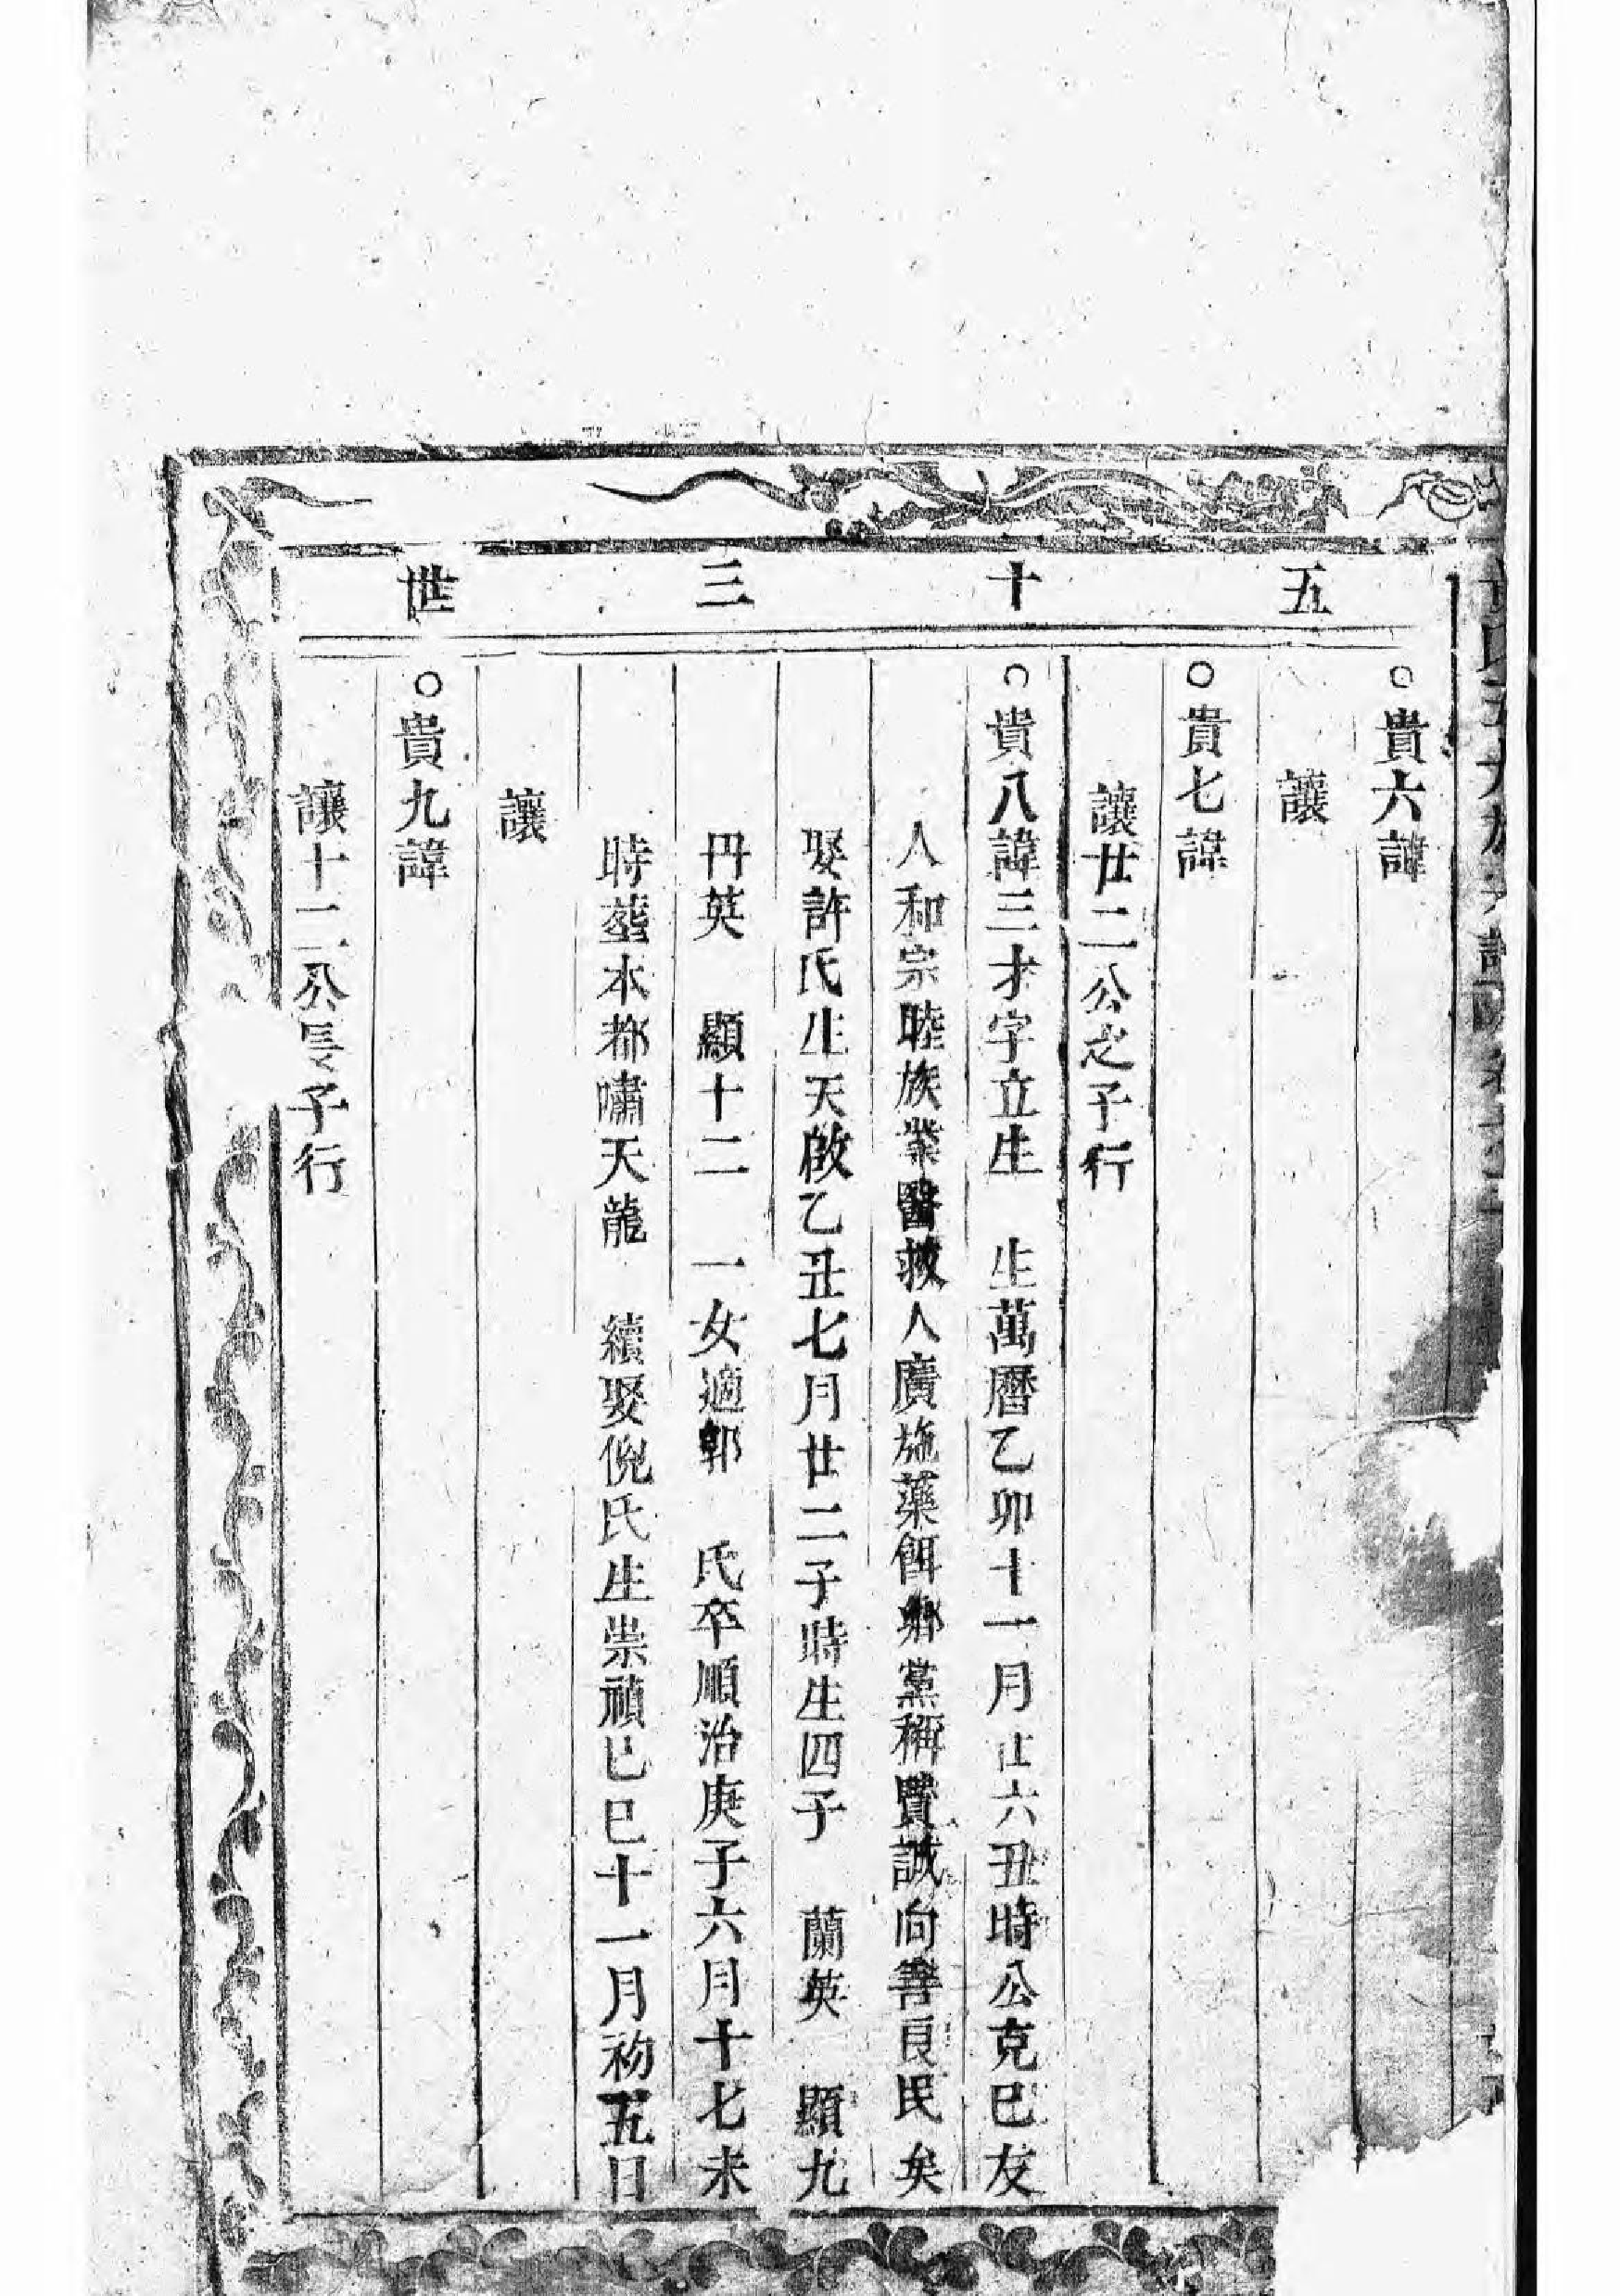 五十三世
○貴六諱
讓
○貴七諱
讓廿二公之子行
○貴八諱三才字立生 生萬曆乙卯十一月廿六丑時公克巳友
人和宗睦族業醫救人廣施藥餌鄉黨稱賢誠向善良民矣
娶許氏生天啟乙丑七月廿二子時生四子 蘭英 顯九
丹英 顯十二 一女適郭 氏卒順治庚子六月十七未
時塟本都嘯天龍 續娶倪氏生崇禎巳巳十一月初五日
讓
○貴九諱
讓十二公長子行